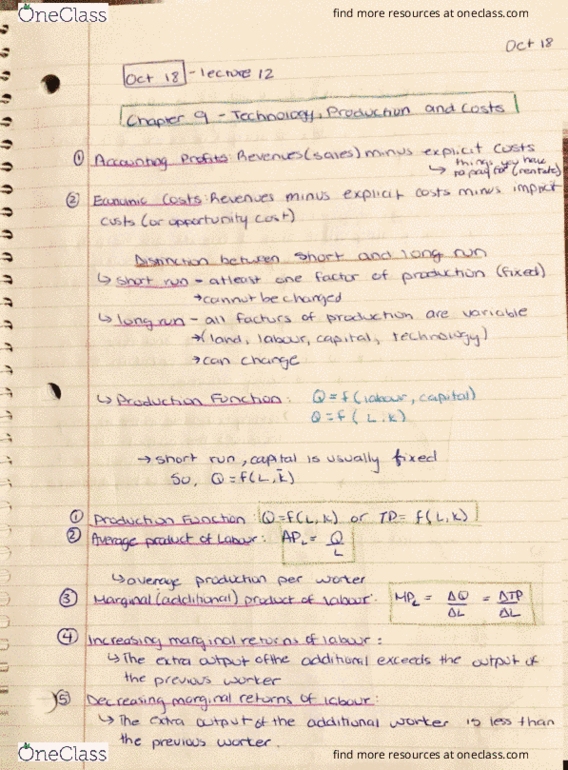 OneClass
find more resources at oneclass.com
Oct 18
Oct 18 - lecture 12
Chapter 9 - Technology, Production and Costs
① Accounting Profits: Revenues (sales) minus explicit costs
↳ things you have
to pay for (rent etc)
② Economic Costs: Revenues minus explicit costs minus implicit
costs (or opportunity cost)
Distinction between short and long run
↳ short run - atleast one factor of production (fixed)
→ cannot be changed
↳ long run - all factors of production are variable
→ (land, labour, capital, technology)
→ can change
↳ Production Function: Q = f (labour, capital)
Q = f ( L, K)
→ short run, capital is usually fixed
So, Q = f(L, K̄)
① Production Function: Q=f(L,K) or TP= f(L,K)
② Average product of Labour: APL = Q/L
↳ average production per worker
③ Marginal (additional) product of labour: MPL = ΔQ/ΔL = ΔTP/ΔL
④ Increasing marginal returns of labour:
↳ The extra output of the additional exceeds the output of
the previous worker
⑤ Decreasing marginal returns of labour:
↳ The extra output of the additional worker is less than
the previous worker.
OneClass
find more resources at oneclass.com